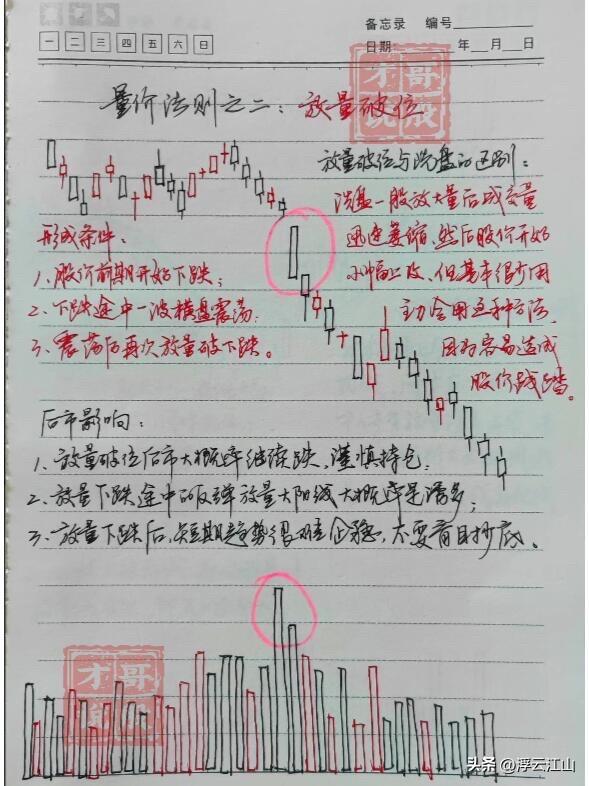 备忘录 编号
一 二 三 四 五 六 日
日期: 年 月 日
量价法则之二：放量破位
才哥说股
放量破位与洗盘的区别：
洗盘一般放大量后成交量
迅速萎缩，然后股价开始
小幅上攻，但基本很少用
主力会用这种方法，
因为容易造成
股价踩踏。
形成条件：
1、股价前期开始下跌；
2、下跌途中一波横盘震荡；
3、震荡后再次放量破下跌。
后市影响：
1、放量破位后市大概率继续跌，谨慎持仓；
2、放量下跌途中的反弹放量大阳线大概率是诱多；
3、放量下跌后，短期趋势很难企稳，不要盲目抄底。
才哥说股
头条 @浮云江山